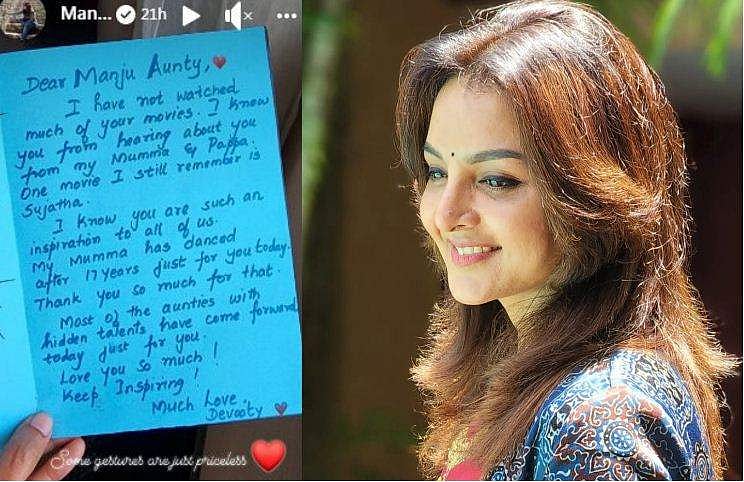 Man... 21h
Dear Manju Aunty,
I have not watched
much of your movies. I know
you from hearing about you
from my Mumma & Pappa.
One movie I still remember is
Sujatha.
I know you are such an
inspiration to all of us.
My Mumma has danced
after 17 years just for you today.
Thank you so much for that.
Most of the aunties with
hidden talents have come forward
today just for you.
Love you so much!
Keep Inspiring!
Much Love,
Devooty
Some gestures are just priceless